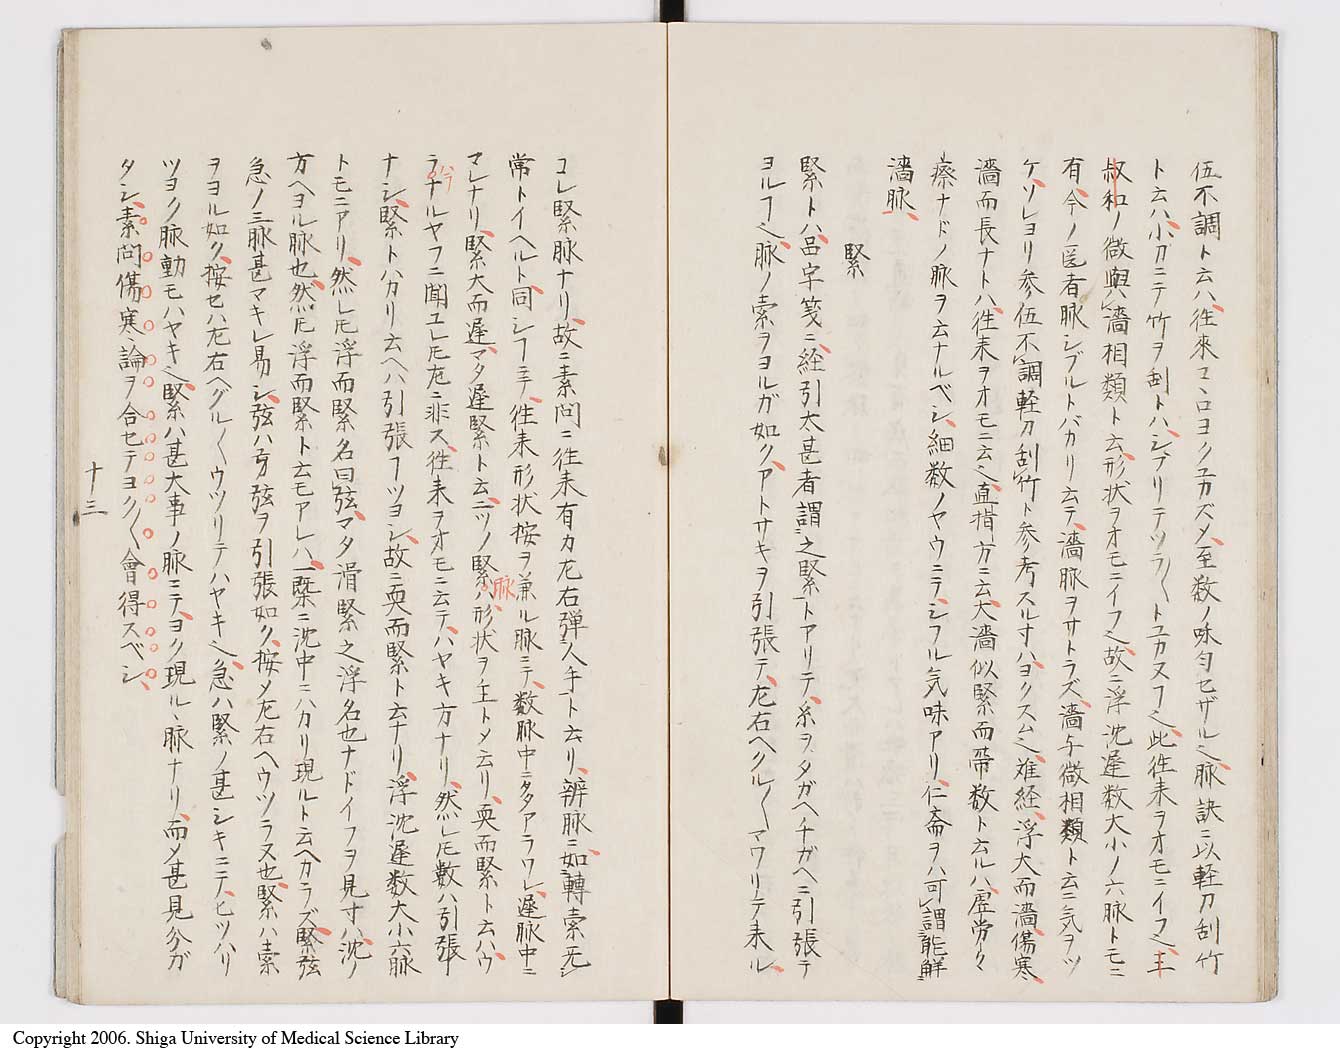 伍不調ト云ハ、往來コヽロヨクユカズメ、至数ノ味匀セザル也、脉訣ニ以軽刀刮竹
ト云ハ、小刀ニテ竹ヲ刮トハ、シブリテツラ〱トユカヌフ也、此往来ヲオモニイフ也、王
叔和ノ微與濇相類ト云、形状ヲオモニイフ也、故ニ浮沈遅数大小ノ六脉トモニ
有、今ノ医者脉シブルトバカリ云テ、濇脉ヲサトラズ、濇与微相類ト云ニ気ヲツ
ケ、ソレヨリ参伍不調軽刀刮竹ト参考スル寸ハヨクスム也、难経、浮大而濇、傷寒、
濇而長ナトハ、往来ヲオモニ云也、直指方ニ云、大濇似緊而帶数ト云ルハ、虚労々
瘵ナドノ脉ヲ云ナルベシ、細数ノヤウニテ、シフル気味アリ、仁斎ヲハ可謂能觧
濇脉、
緊
緊トハ、品字箋ニ、経引太甚者謂之緊トアリテ、糸ヲタガヘチガヘニ引張テ
ヨルフ也、脉ノ索ヲヨルガ如ク、アトサキヲ引張テ、左右ヘクル〱マワリテ来ル
コレ緊脉ナリ、故ニ素问ニ往来有力左右弾人手ト云リ、辨脉ニ如轉索无
常トイヘルト同シフニテ、往来形状按ヲ兼ル脉ニテ、数脉中ニタアラワレ、遅脉中ニ
マレナリ、緊大而遅、マタ遅緊ト云ニツノ緊ハ脉形状ヲ主トメ云リ、耎而緊ト云ハ、ウ
ラナルヤフニ聞ユレ𪜈左ニ非ス、往来ヲオモニ云テ、ハヤキ方ナリ、然レ𪜈数ハ引張
ナシ、緊トハカリ云ヘハ引張フツヨシ、故ニ耎而緊ト云ナリ、浮沈遅数大小六脉
トモニアリ、然レ𪜈浮而緊名曰弦、マタ滑緊之浮名也ナドイフヲ見寸ハ、沈ノ
方ヘヨル脉也、然𪜈浮而緊ト云モアレハ、一槩ニ沈中ニハカリ現ルト云ヘカラズ、緊弦
急ノ三脉甚マキレ易シ、弦ハ弓弦ヲ引張如ク、按メ左右ヘウツラス也、緊ハ索
ヲヨル如ク、按セハ左右ヘグル〱ウツリテハヤキ也、急ハ緊ノ甚シキニテ、ヒツハリ
ツヨク脉動モハヤキ也、緊ハ甚大事ノ脉ニテ、ヨク現ルヽ脉ナリ、而メ甚見分ガ
タシ、素问傷寒論ヲ合セテヨク〱會得スベシ、
十三
Copyright 2006. Shiga University of Medical Science Library